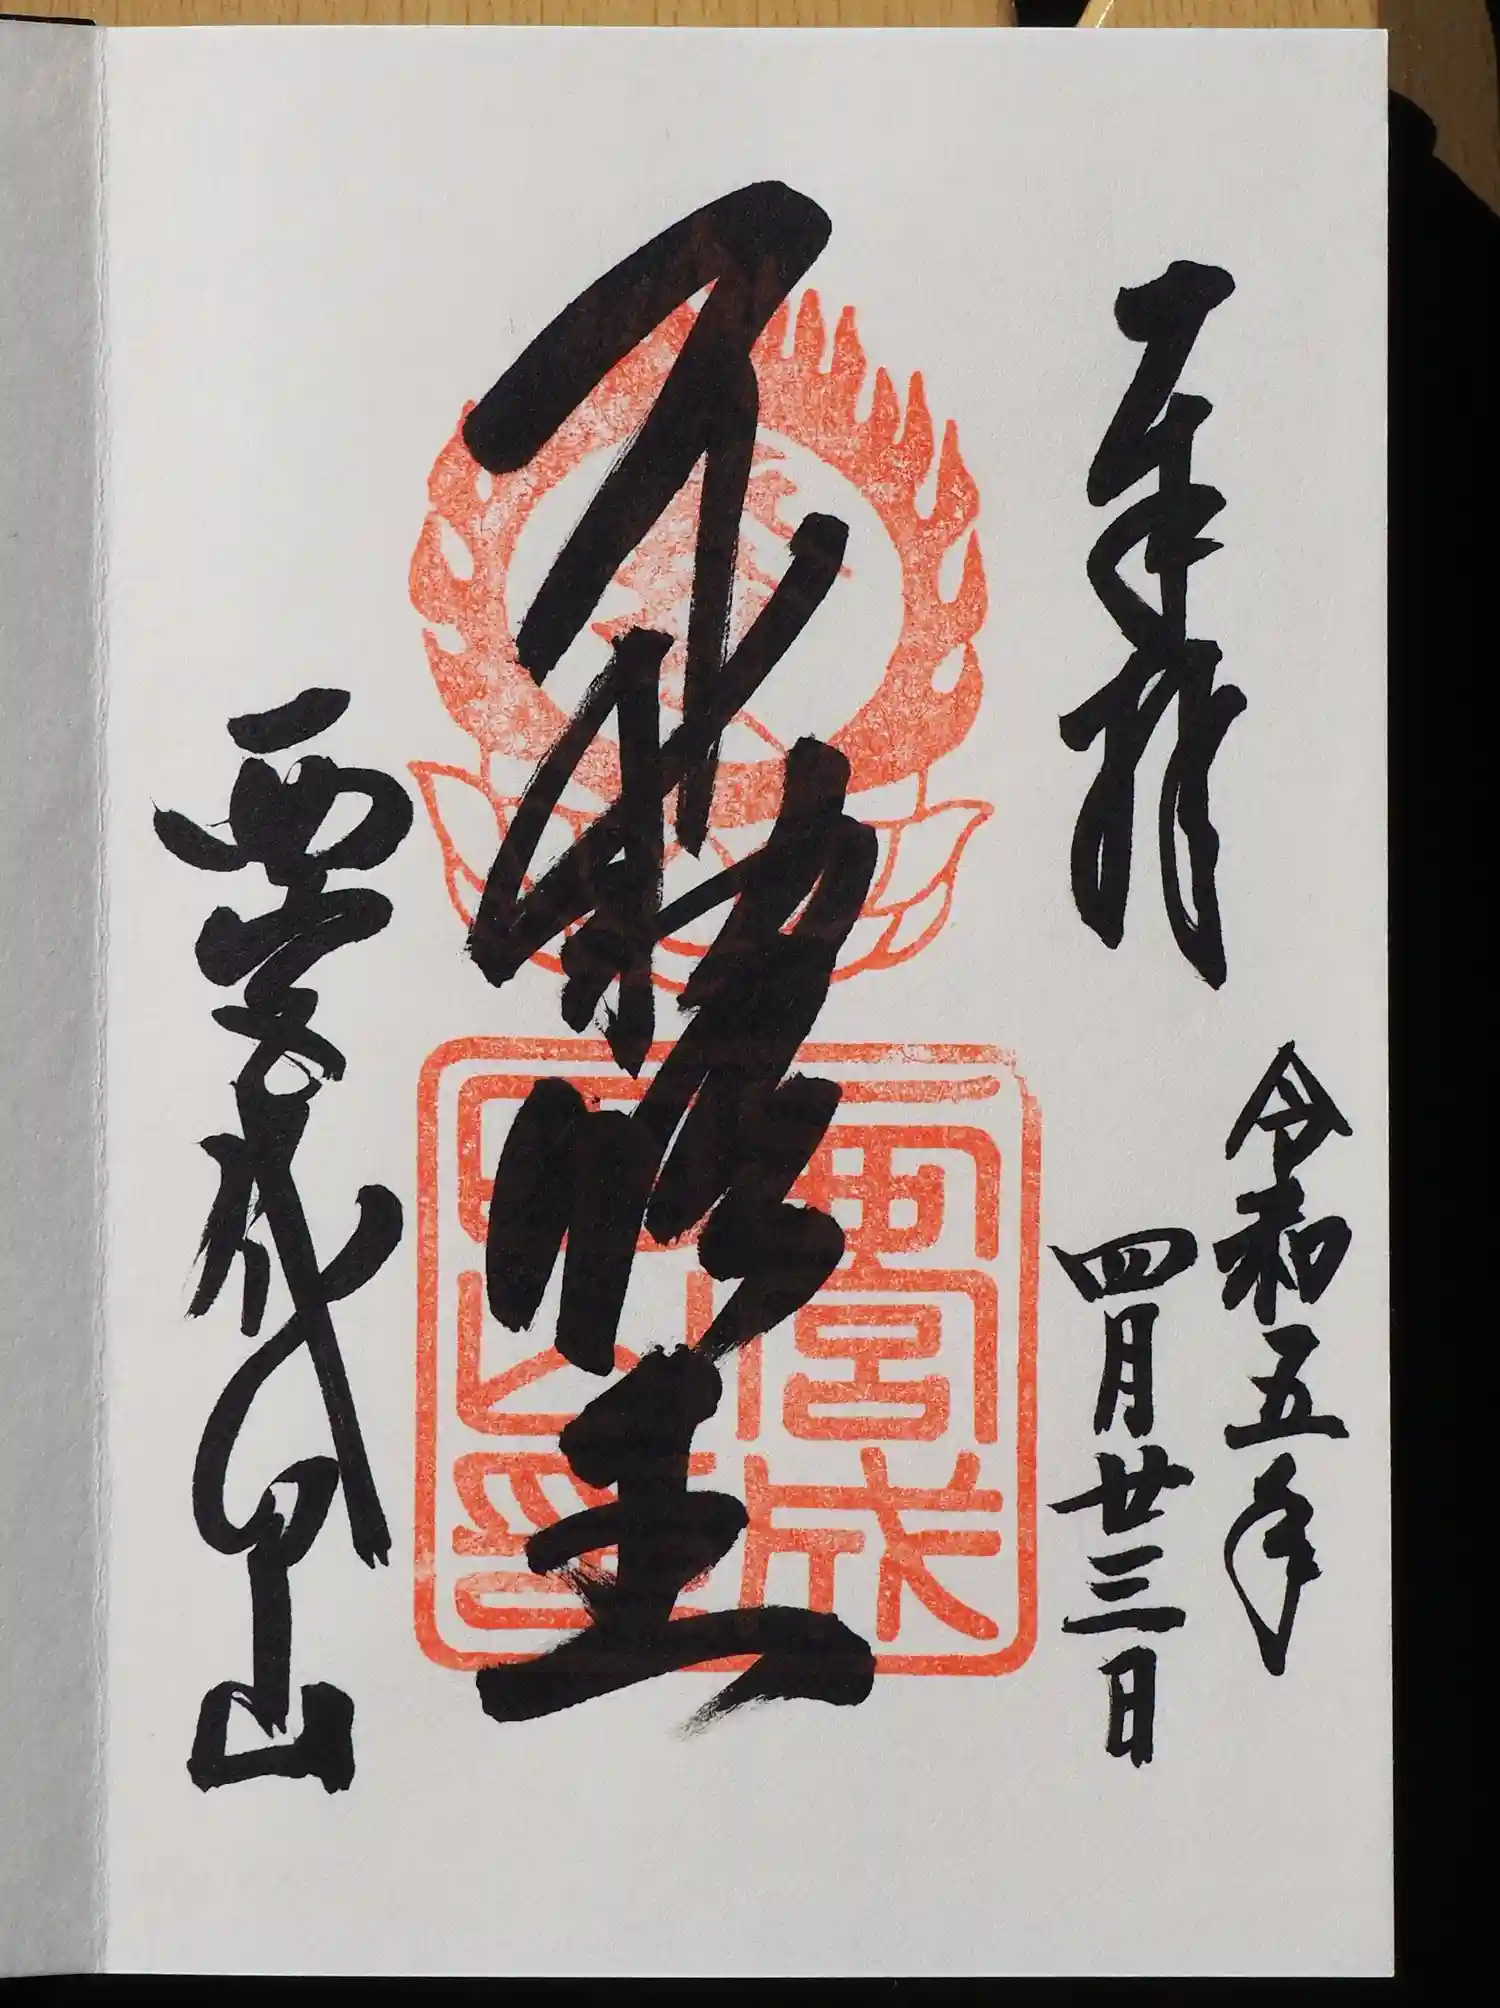 奉拝
令和五年
四月廿三日
不動明王
西宮成田山
西宮成
田山印